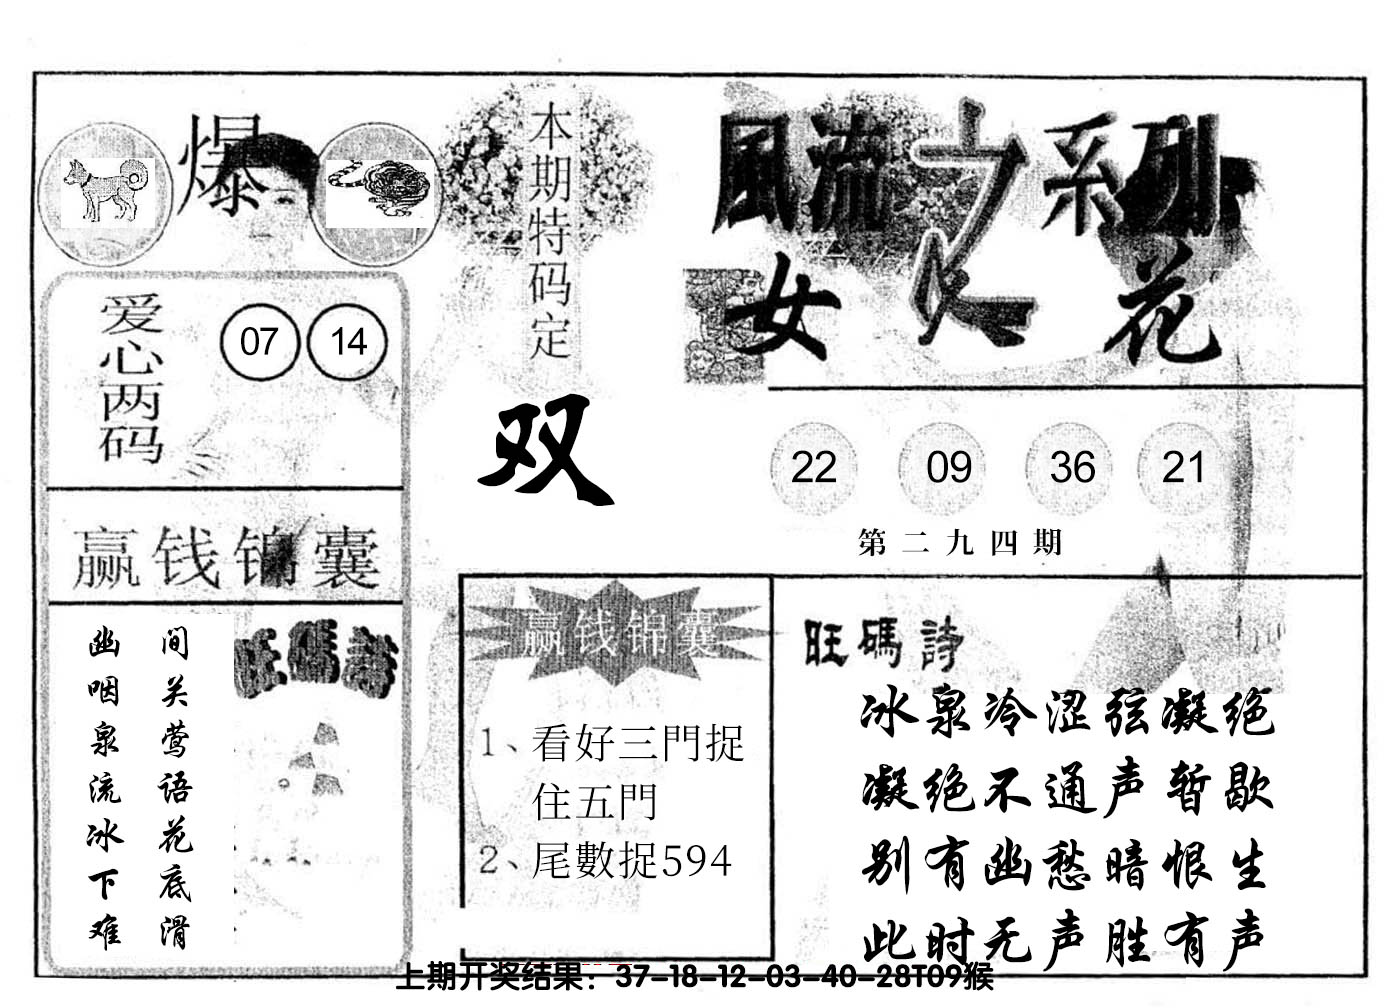 爆
本期特码定
双
風流之系列
女人花
爱心两码
07 14
22 09 36 21
第二九四期
赢钱锦囊
间关莺语花底滑
幽咽泉流冰下难
旺碼詩
赢钱锦囊
1、看好三門捉
住五門
2、尾數捉594
旺碼詩
冰泉冷涩弦凝绝
凝绝不通声暂歇
别有幽愁暗恨生
此时无声胜有声
上期开奖结果：37-18-12-03-40-28T09猴